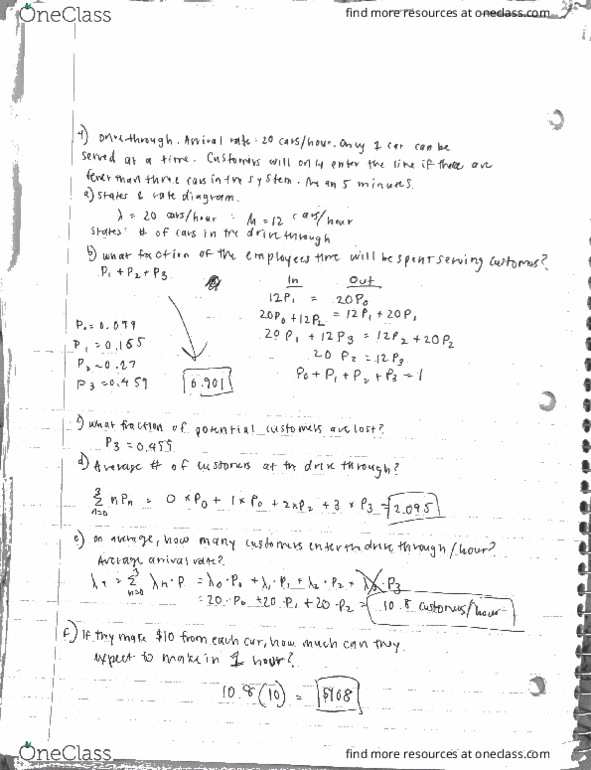 OneClass
find more resources at oneclass.com
4) Drive through. Arrival rate: 20 cars/hour. Only 1 car can be
served at a time. Customers will only enter the line if there are
fewer than three cars in the system. 5 minutes.
a) states & rate diagram.
λ = 20 cars/hour M = 12 cars/hour
states: # of cars in the drive through
b) what fraction of the employees time will be spent serving customers?
P1 + P2 + P3
In Out
12P1 = 20P0
20P0 + 12P2 = 12P1 + 20P1
20P1 + 12P3 = 12P2 + 20P2
20P2 = 12P3
P0 + P1 + P2 + P3 = 1
P0 = 0.099
P1 = 0.165
P2 = 0.27
P3 = 0.459
0.901
c) what fraction of potential customers are lost?
P3 = 0.459
d) Average # of customers at the drive through?
3
Σ nPn = 0 × P0 + 1 × P0 + 2 × P2 + 3 × P3 = 2.095
n=0
e) on average, how many customers enter the drive through/hour?
Average arrival rate?
3
Σ λn·P = λ0·P0 + λ1·P1 + λ2·P2 + P3
n=0
= 20·P0 + 20·P1 + 20·P2 = 10.8 customers/hour
f) If they make $10 from each car, how much can they
expect to make in 1 hour?
10.8(10) = $108
OneClass
find more resources at oneclass.com